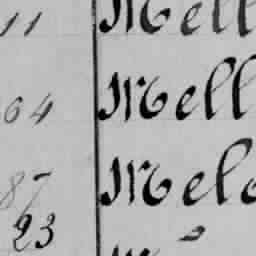 11 Mell
64 Mell
87 Melo
23